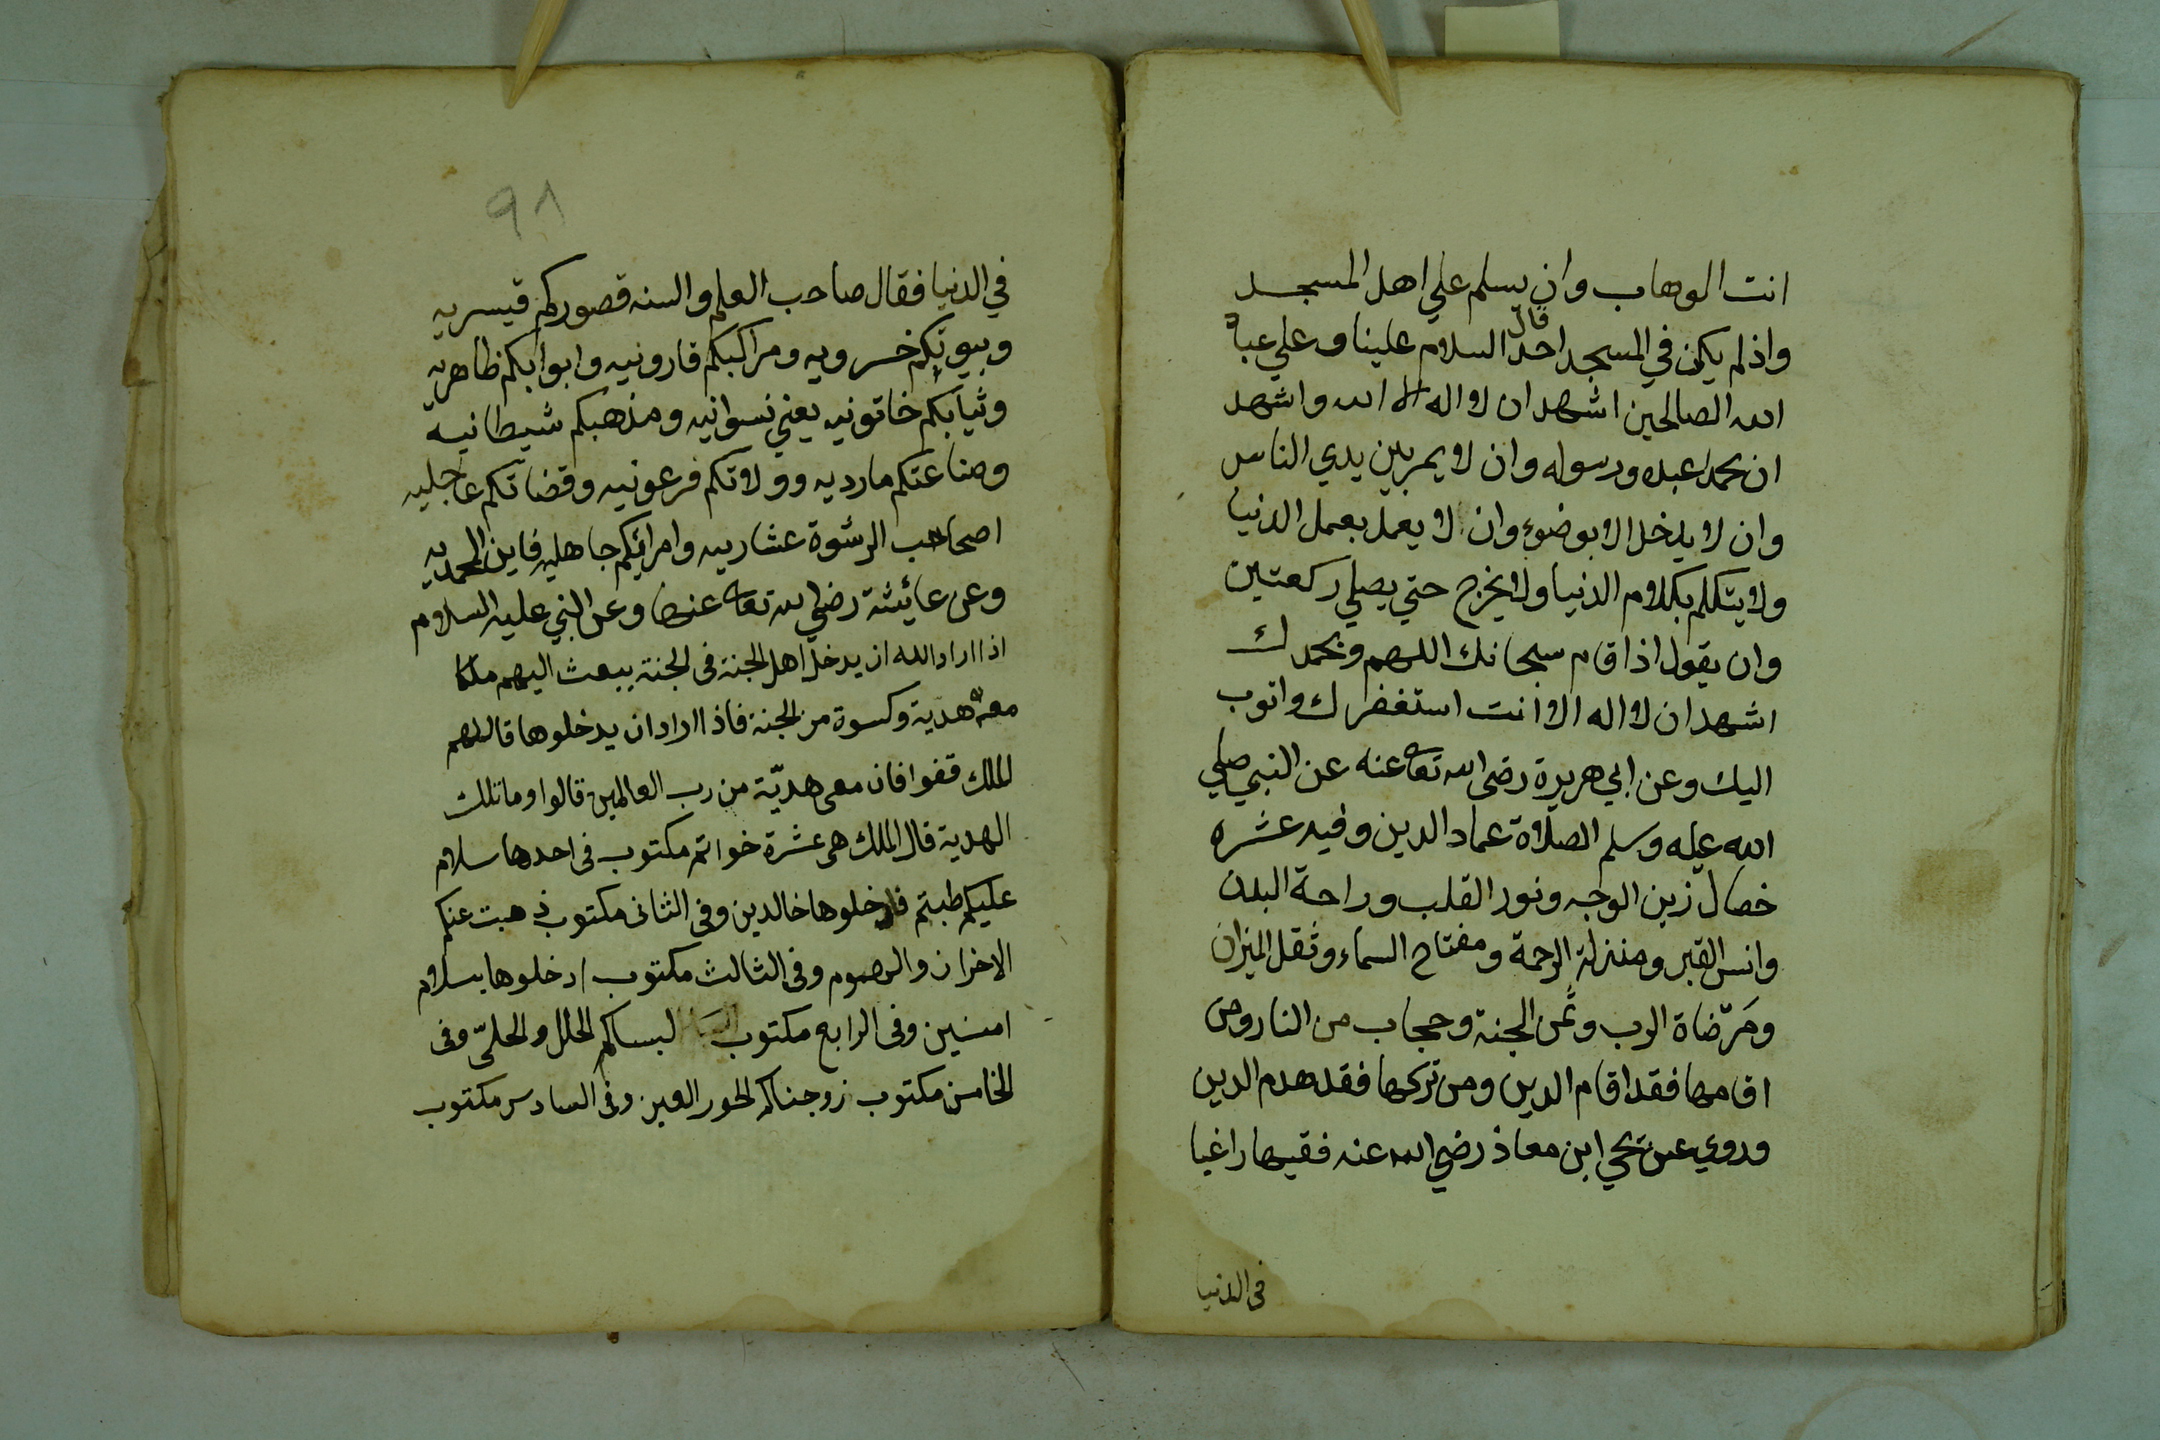 انت الوهاب وان يسلم علي اهل المسجد
واذلم يكن في المسجد احد قال السلام علينا وعلي عباد
الله الصالحين اشهد ان لا اله الا الله واشهد
ان محمدا عبده ورسوله وان لا يمر بين يدي الناس
وان لا يدخل الا بوضوء وان لا يعمل بعمل الدنيا
ولا يتكلم بكلام الدنيا ولا يخرج حتي يصلي ركعتين
وان يقول اذا قام سبحانك اللهم وبحمدك
اشهد ان لا اله الا انت استغفرك واتوب
اليك وعن ابي هريرة رضى الله تعا عنه عن النبي صلي
الله عليه وسلم الصلاة عماد الدين وفيه عشره
خصال زين الوجه ونور القلب وراحة البدن
وانس القبر ومنزلة الرحمة ومفتاح السماء وثقل الميزان
ومرضاة الرب وثمن الجنة وحجاب من النار ومن
اقامها فقد اقام الدين ومن تركها فقد هدم الدين
وروي عن يحي ابن معاذ رضي الله عنه فقيها راغبا
فى الدنيا
٩٨
في الدنيا فقال صاحب العلم والسنه قصوركم قيسريه
وبيوتكم خسرويه ومراكبكم قارونيه وابوابكم ظاهريه
وثيابكم خاتونيه يعني نسوانيه ومذهبكم شيطانيه
وصناعتكم مارديه وولاتكم فرعونيه وقضاتكم عاجليه
اصحاب الرشوة عشاريه وامرائكم جاهليه فاين المحمديه
وعن عائيشة رضي الله تعا عنها وعن النبي عليه السلام
اذا اراد الله ان يدخل اهل الجنة فى الجنة يبعث اليهم ملكا
معه هدية وكسوة من الجنة فاذا اراد ان يدخلوها قال لهم
الملك قفوا فان معى هديّة من رب العالمين قالوا وما تلك
الهدية قال الملك هى عشرة خواتم مكتوب فى احدها سلام
عليكم طبتم فادخلوها خالدين وفى الثانى مكتوب ذهبت عنكم
الاخزان والهموم وفى الثالث مكتوب ادخلوها بسلام
امنين وفى الرابع مكتوب لبساكم الحلل والحلىّ وفى
الخامس مكتوب زوجناكم الحور العين وفى السادس مكتوب